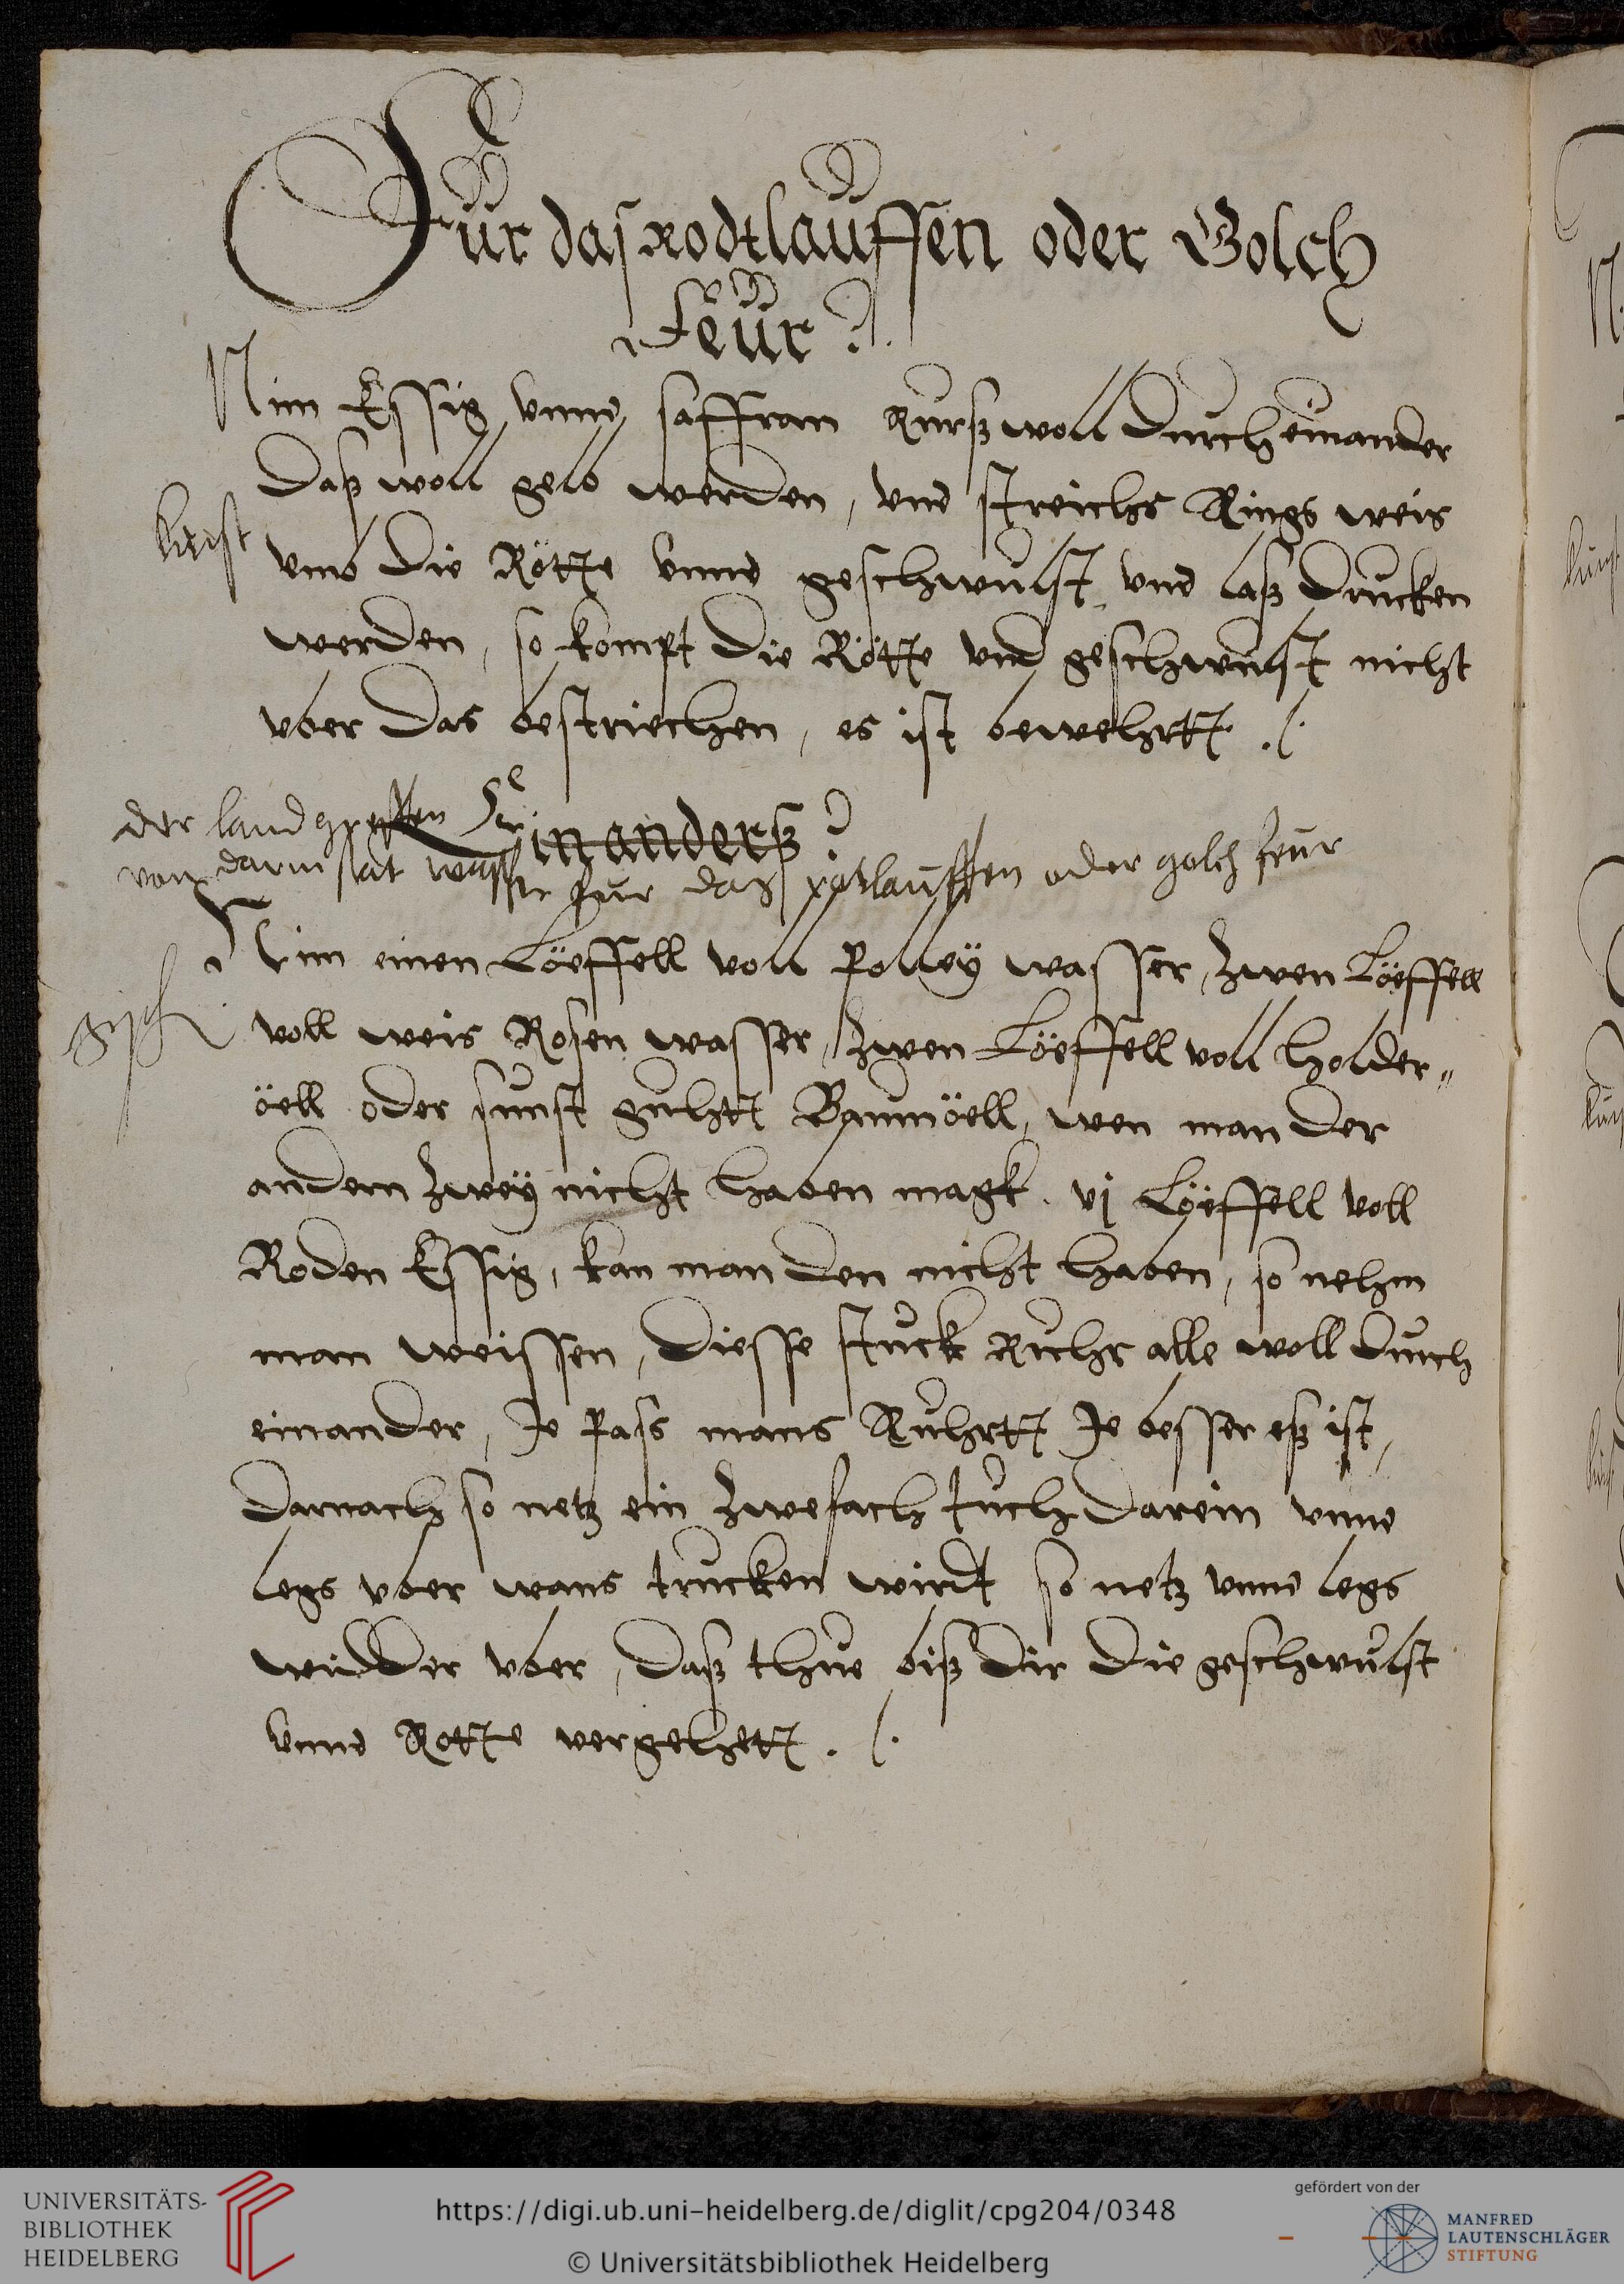 Fur das rodtlauffen oder Golch
Feur
Nim Essig vnnd saffran Rurß woll durch einander
daß woll gelb werden, vnd streichs Rings weis
vmb die Rötte vnnd geschwulst vnd laß drucken
werden, so kompt die Rötte vnd geschwulst nicht
vber das bestriechen, es ist bewehrtt ./.
der landgreffen
Ein anderß
von darmstat wasser fur daß rotlauffen oder golch feur
Nim einen Löeffell voll Polley wasser, Zwen Löeffell
voll weis Rosen wasser, Zwen Löeffell voll holder„
öell oder sunst guhtt Baumöell, wen man der
andern Zwey nicht haben magk. vj Löeffell voll
Roden Essig, kan man den nicht haben, so nehm
man weissen, diesse stuck Ruhr alle woll durch
einander, Je Pass mans Ruhrtt Je besser eß ist,
darnach so netz ein Zwefach tuch darein vnnd
legs vber wans trucken wirdt so netz vnnd legs
widder vber, daß thue biß dir die geschwulst
vnnd Rotte vergehett ./.
UNIVERSITÄTS-
BIBLIOTHEK
HEIDELBERG
https://digi.ub.uni-heidelberg.de/diglit/cpg204/0348
© Universitätsbibliothek Heidelberg
gefördert von der
MANFRED
LAUTENSCHLÄGER
STIFTUNG